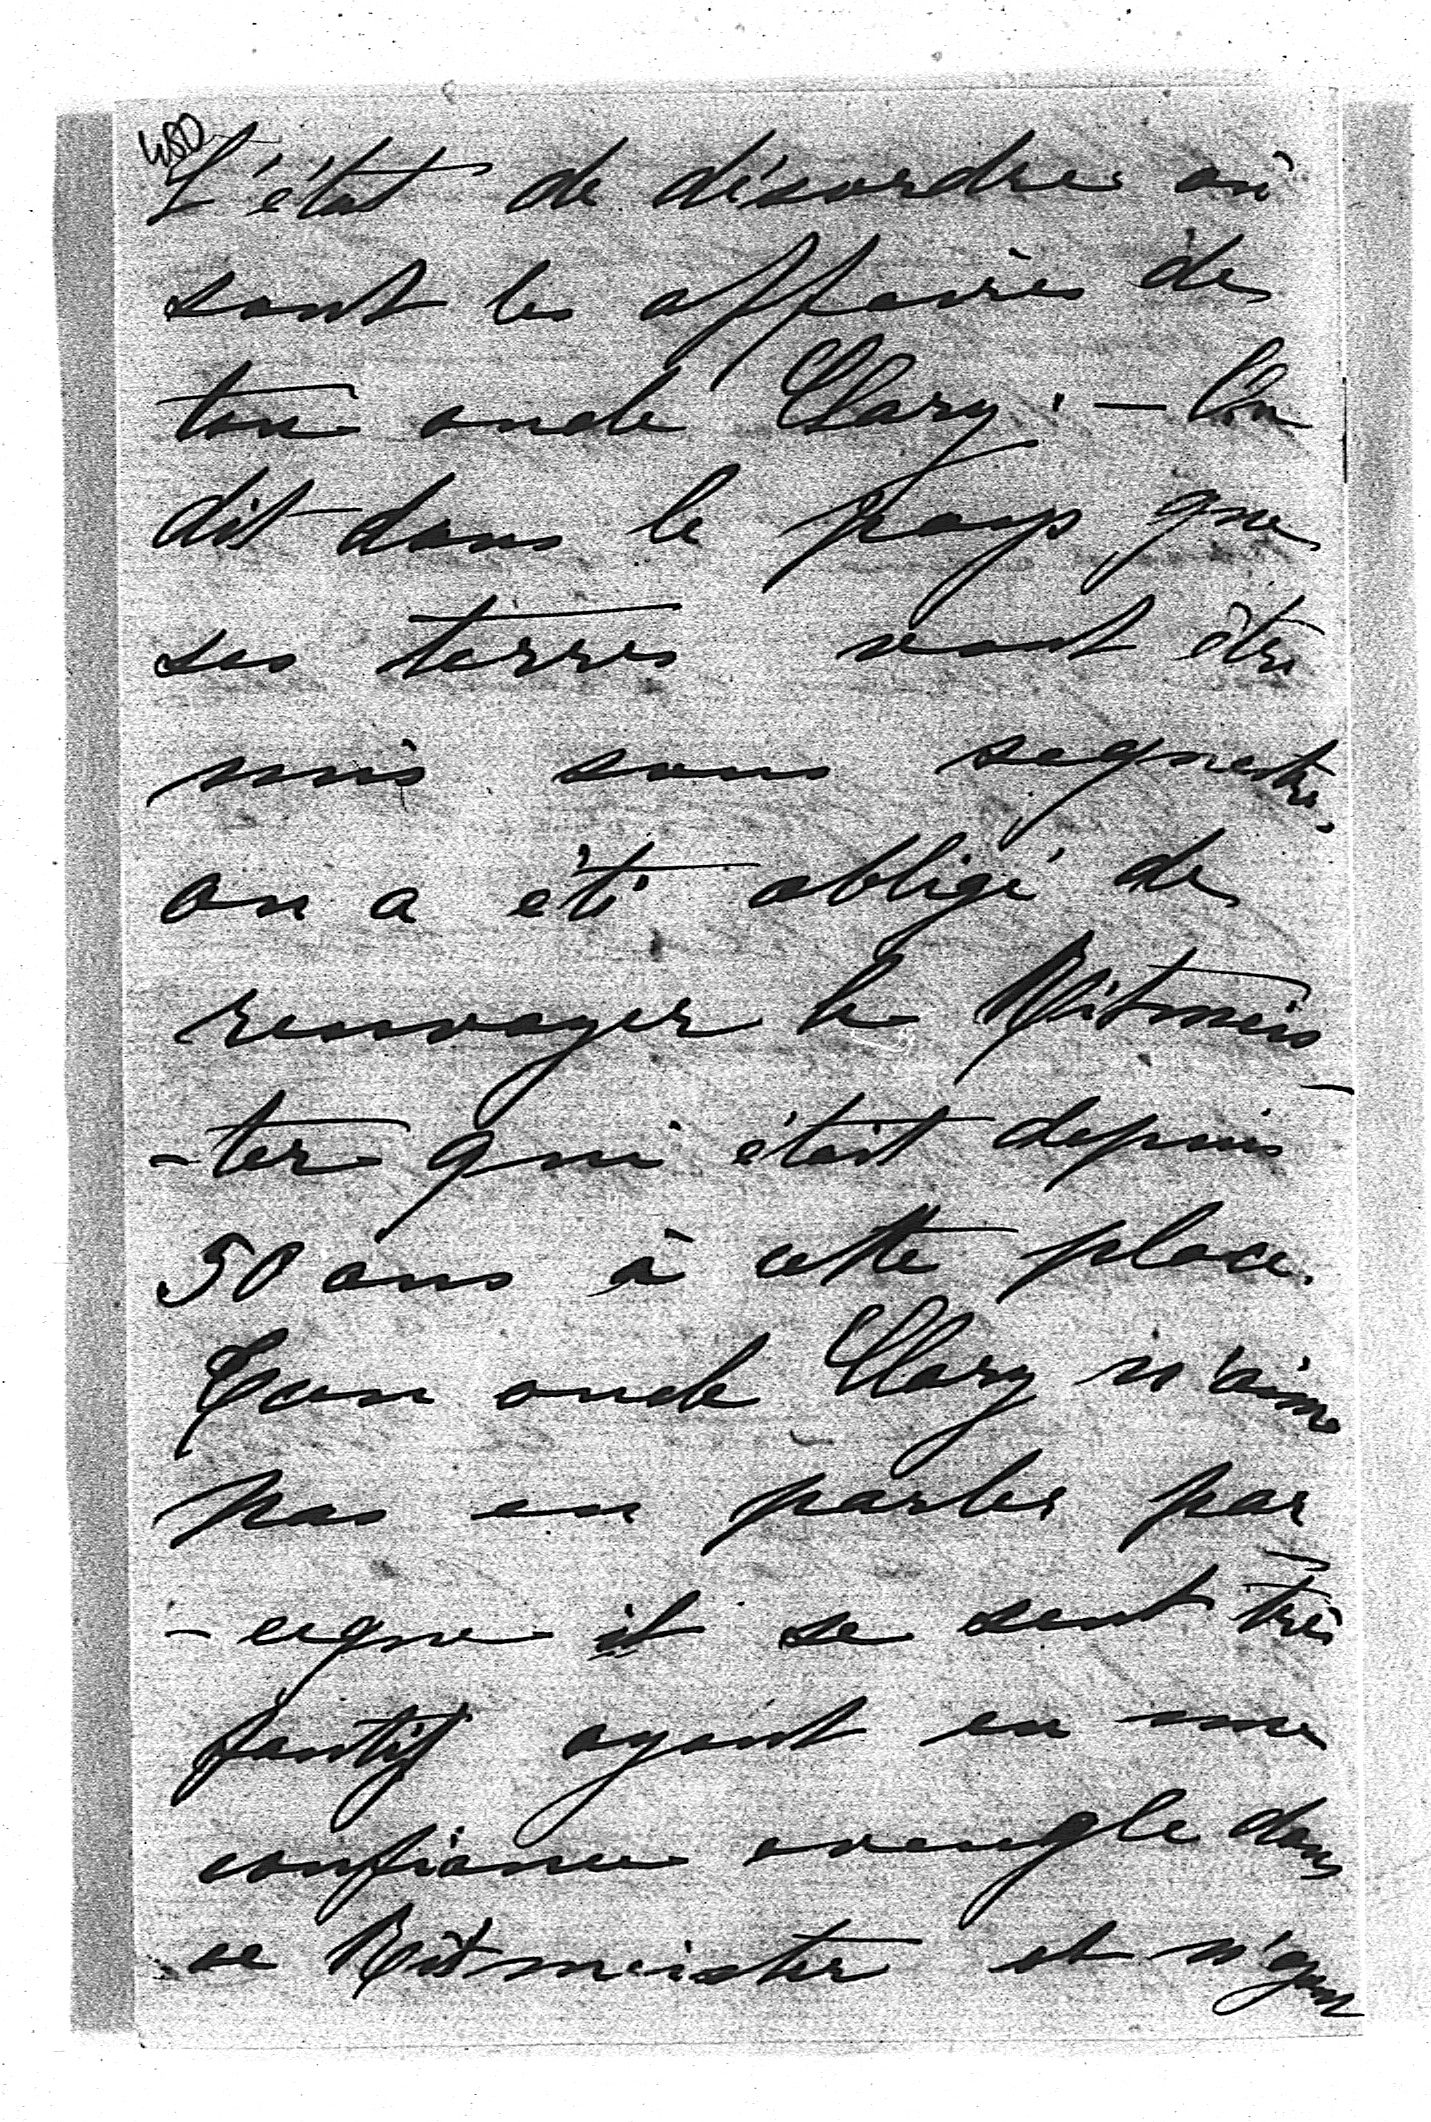 480
L'état de désordre où
sont les affaires de
ton oncle Clary. — L'on
dit dans le pays que
ses terres vont être
mis sous sequestre,
on a été obligé de
renvoyer le Ritmeis-
-ter qui était depuis
30 ans à cette place.
Ton oncle Clary n'aime
pas en parler par
-ceque il se sent très
fautif ayant eu une
confiance aveugle dans
ce Ritmeister et n'ayant